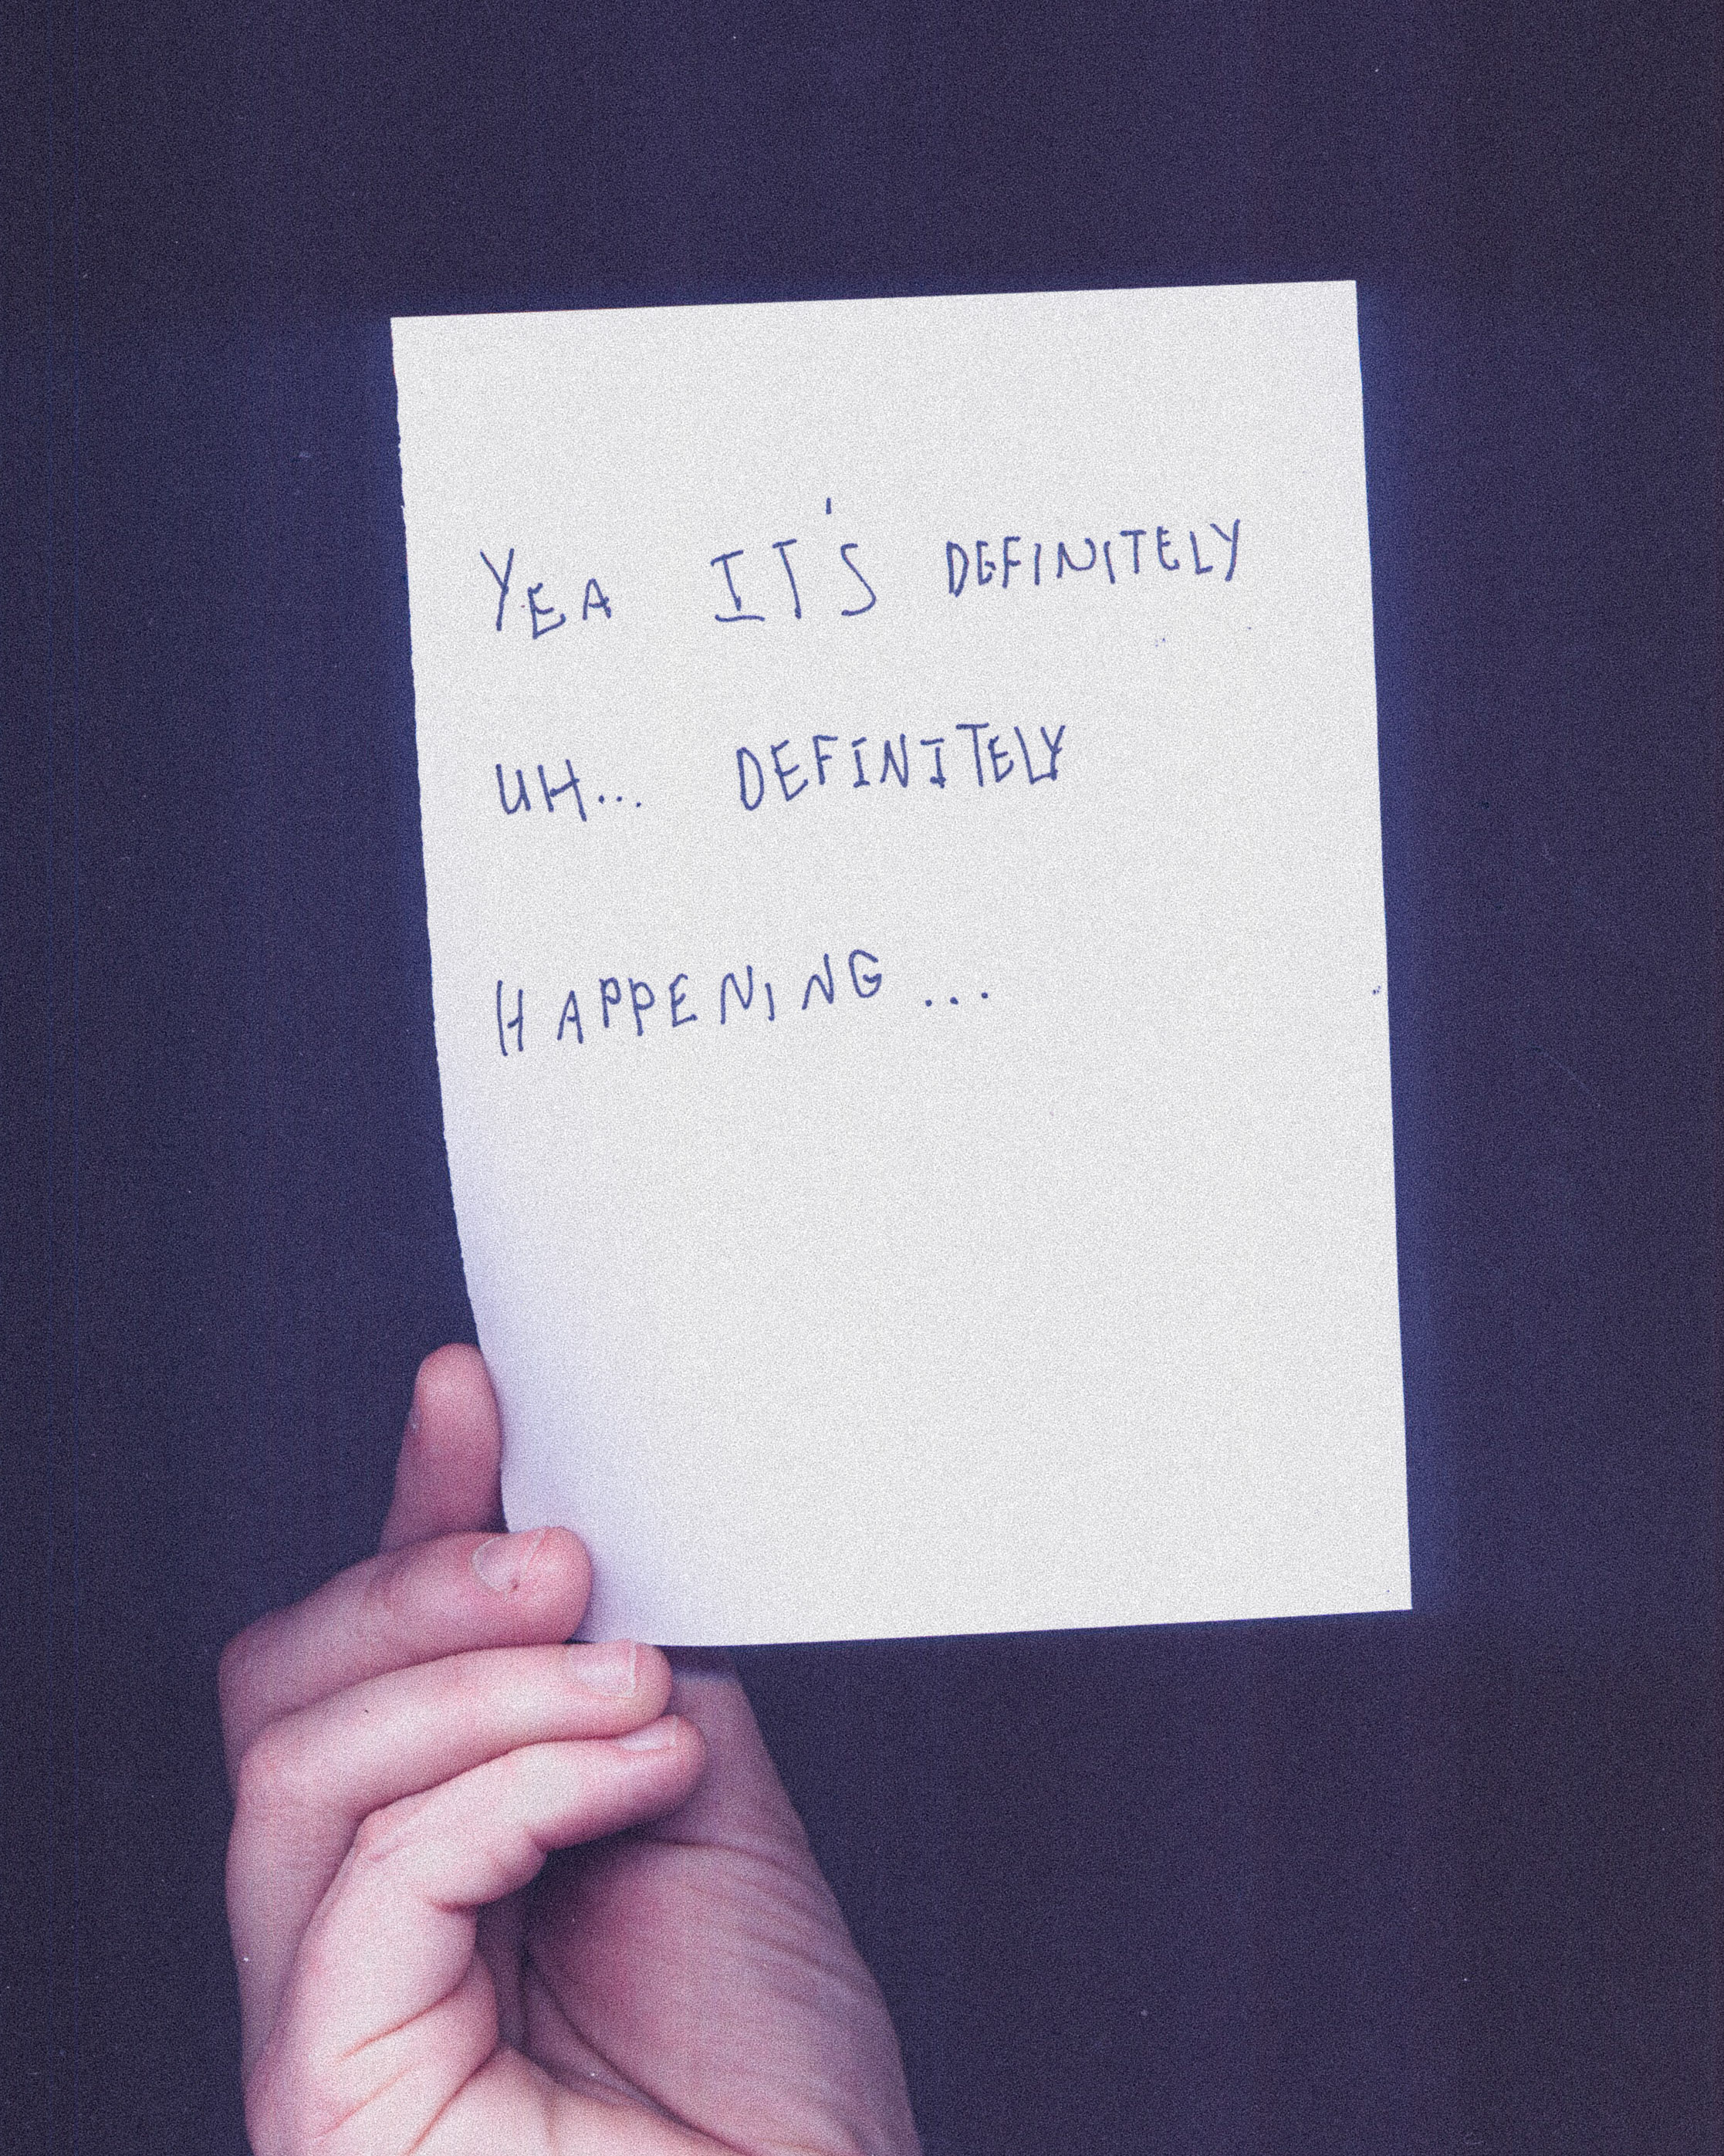 YEA IT'S DEFINITELY
UH... DEFINITELY
HAPPENING...